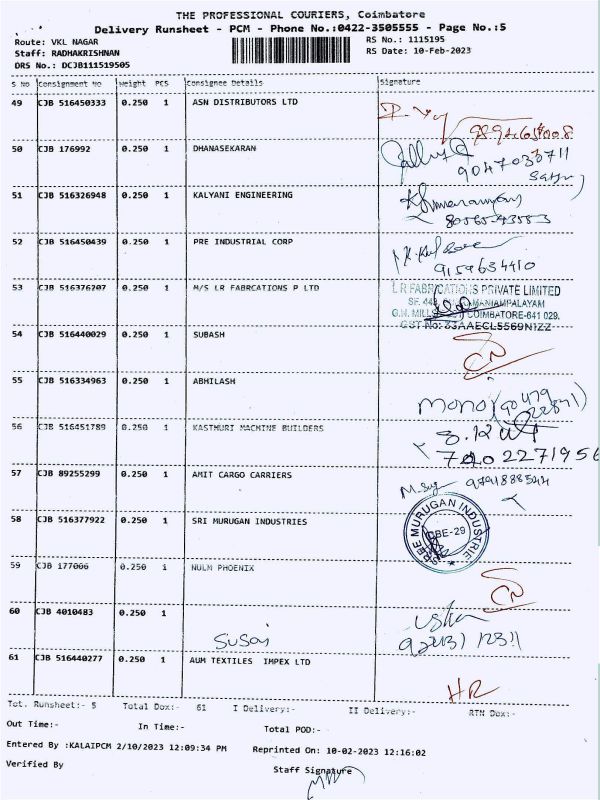 THE PROFESSIONAL COURIERS, Coimbatore
Delivery Runsheet - PCM - Phone No.:0422-3505555 - Page No.:5
Route: VKL NAGAR RS No.: 1115195
Staff: RADHAKRISHNAN RS Date: 10-Feb-2023
DRS No.: DCJB111519505
S No Consignment No Weight PCS Consignee Details Signature
49 CJB 516450333 0.250 1 ASN DISTRIBUTORS LTD
50 CJB 176992 0.250 1 DHANASEKARAN
9047033711
51 CJB 516326948 0.250 1 KALYANI ENGINEERING
52 CJB 516450439 0.250 1 PRE INDUSTRIAL CORP
9159634410
53 CJB 516376207 0.250 1 M/S LR FABRCATIONS P LTD
L R FABRICATIONS PRIVATE LIMITED
COIMBATORE-641 029.
GST No: 33AAECL5569N1ZZ
54 CJB 516440029 0.250 1 SUBASH
CN
55 CJB 516334963 0.250 1 ABHILASH
56 CJB 516451789 0.250 1 KASTMURI MACHINE BUILDERS
57 CJB 89255299 0.250 1 AMIT CARGO CARRIERS
58 CJB 516377922 0.250 1 SRI MURUGAN INDUSTRIES
SREE MURUGAN INDUSTRIE
CBE-29
59 CJB 177006 0.250 1 NULM PHOENIX
CN
60 CJB 4010483 0.250 1
Susai
61 CJB 516440277 0.250 1 AUM TEXTILES IMPEX LTD
HR
Tot. Runsheet:- 5 Total Dox:- 61 I Delivery:- II Delivery:- RTN Dox:-
Out Time:- In Time:- Total POD:-
Entered By :KALAIPCM 2/10/2023 12:09:34 PM Reprinted On: 10-02-2023 12:16:02
Verified By Staff Signature